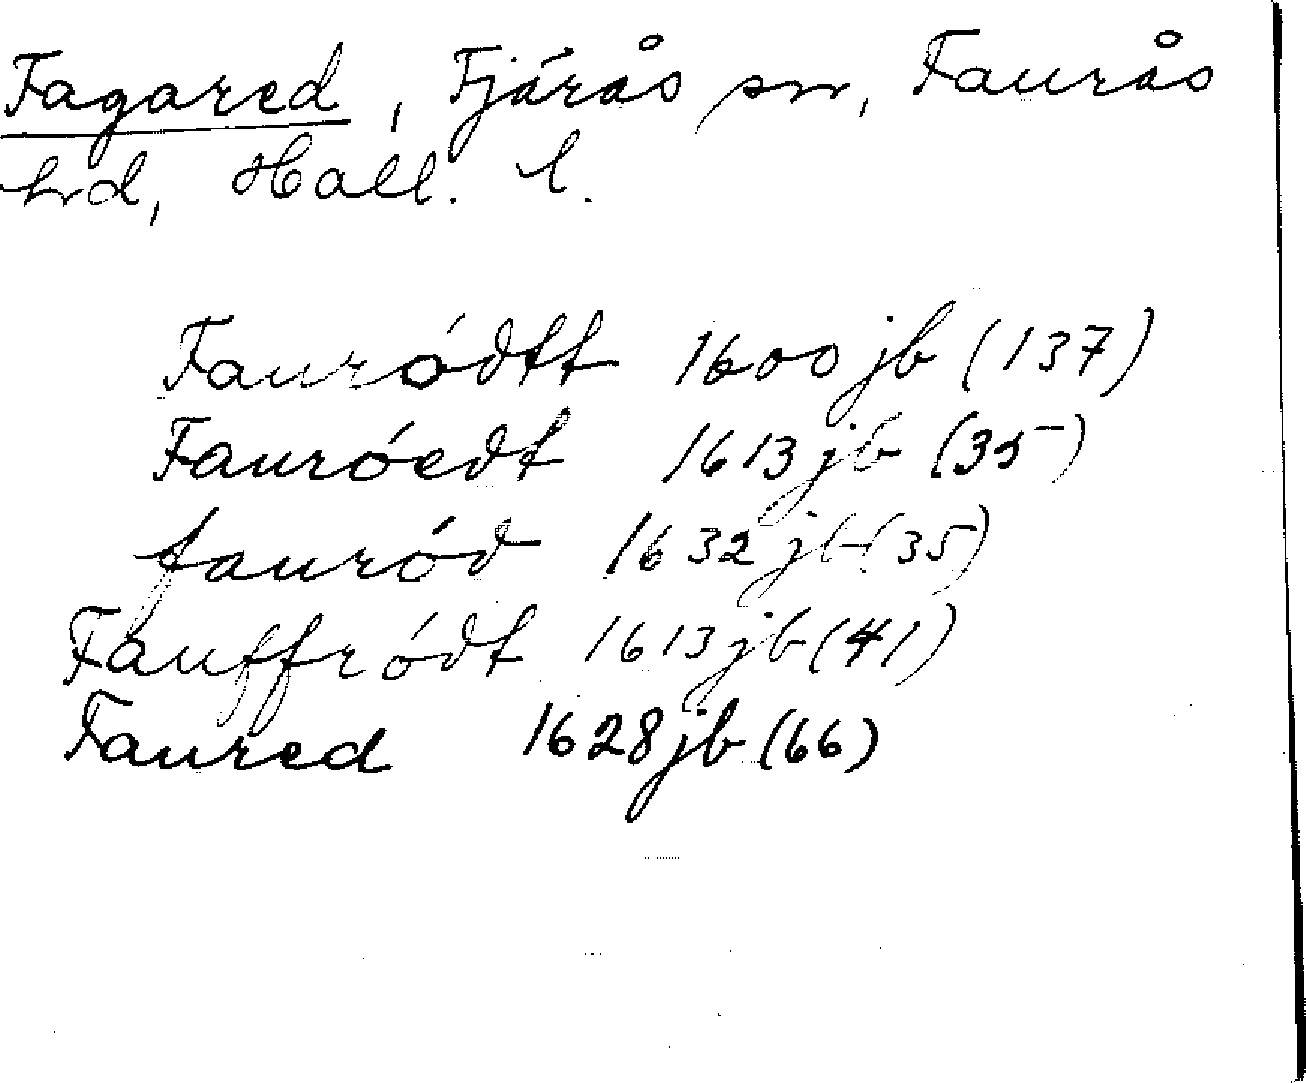 Fagared, Fjärås sn, Faurås
hd, Hall. l.
Fauródtt 1600 jb (137)
Fauróedt 1613 jb (35)
fauród 1632 jb (35)
Fauffródt 1613 jb (41)
Faured 1628 jb (66)